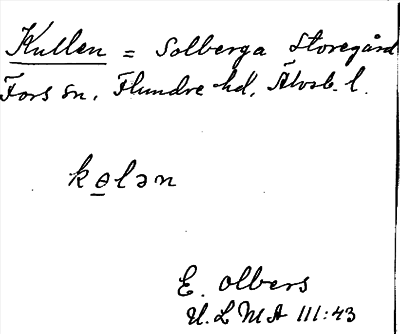 Kullen = Solberga Storegård
Fors sn. Flundre hd, Älvsb. l.
kɵlən
E. Olbers
U.L.M.A III:43